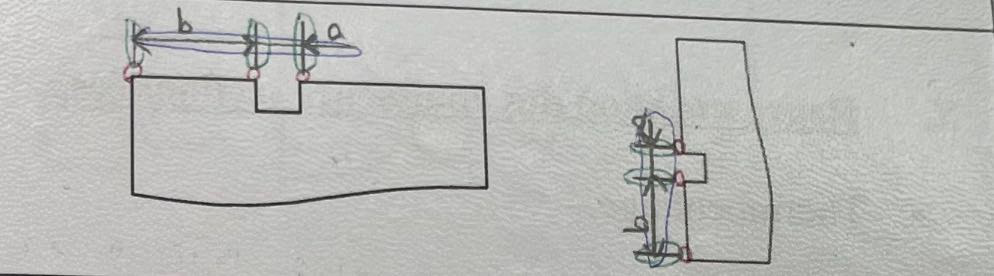 b a
a
b